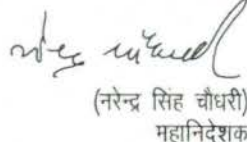 (नरेन्द्र सिंह चौधरी)
महानिदेशक